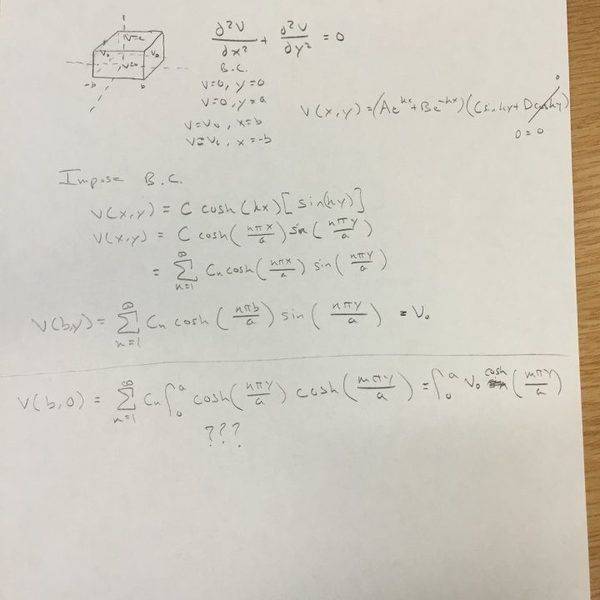 V=0
V₀ V=0 V₀
-b b
∂²V/∂x² + ∂²V/∂y² = 0
B.C.
V=0, y=0
V=0, y=a
V=V₀, x=b
V=V₀, x=-b
V(x,y) = (Ae^{kx} + Be^{-kx})(C sin ky + D cos ky) 0
D = 0
Impose B.C.
V(x,y) = C cosh(kx)[sin(ky)]
V(x,y) = C cosh(nπx/a) sin(nπy/a)
= ∑_{n=1}^{∞} Cₙ cosh(nπx/a) sin(nπy/a)
V(b,y) = ∑_{n=1}^{∞} Cₙ cosh(nπb/a) sin(nπy/a) = V₀
V(b,0) = ∑_{n=1}^{∞} Cₙ ∫₀^a cosh(nπy/a) cosh(mπy/a) = ∫₀^a V₀ cosh(mπy/a)
???